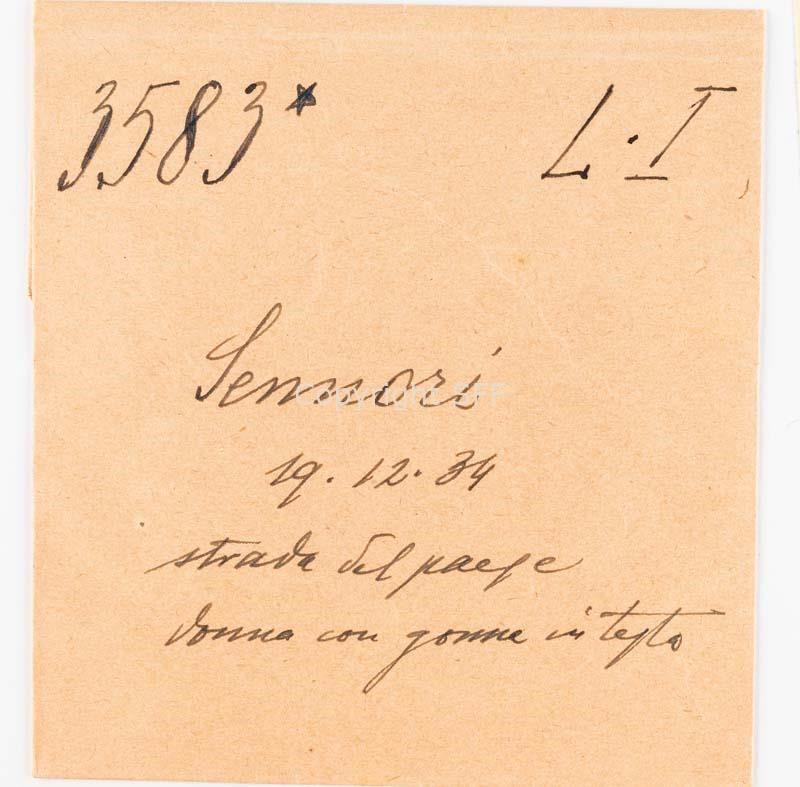 3583* L·I
Sennori
Copyright SFF
19.12.34
strada del paese
donna con gonne in testa